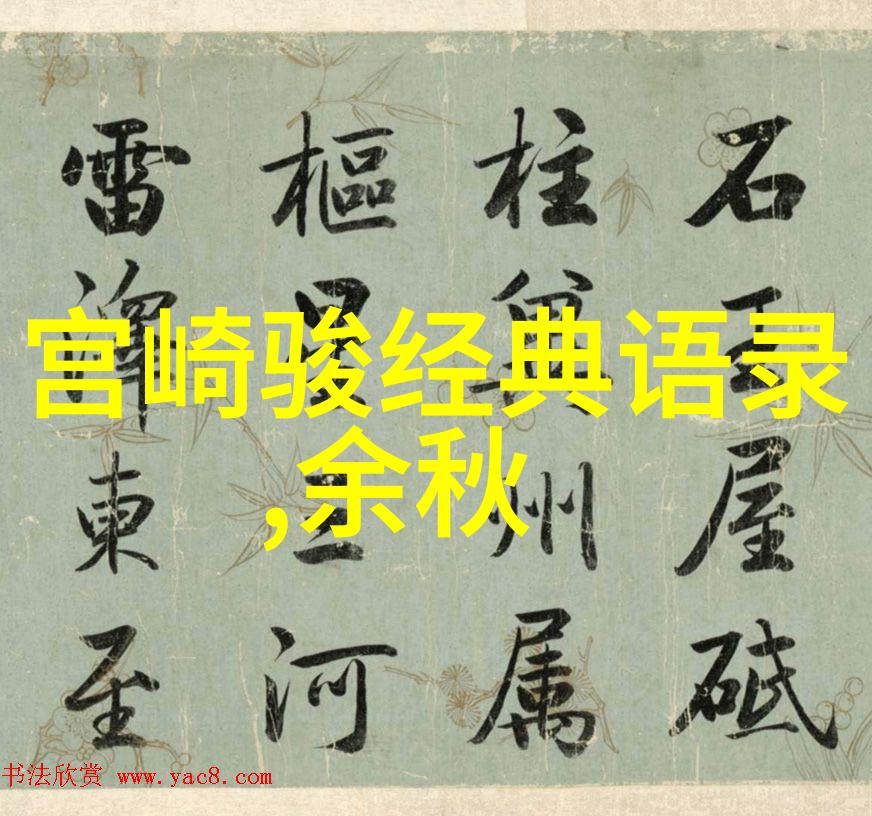 宫崎骏经典语录
,余秋
石王屋砥
柱冀州属
樞星三河
雷澤東至
书法欣赏 www.yac8.com